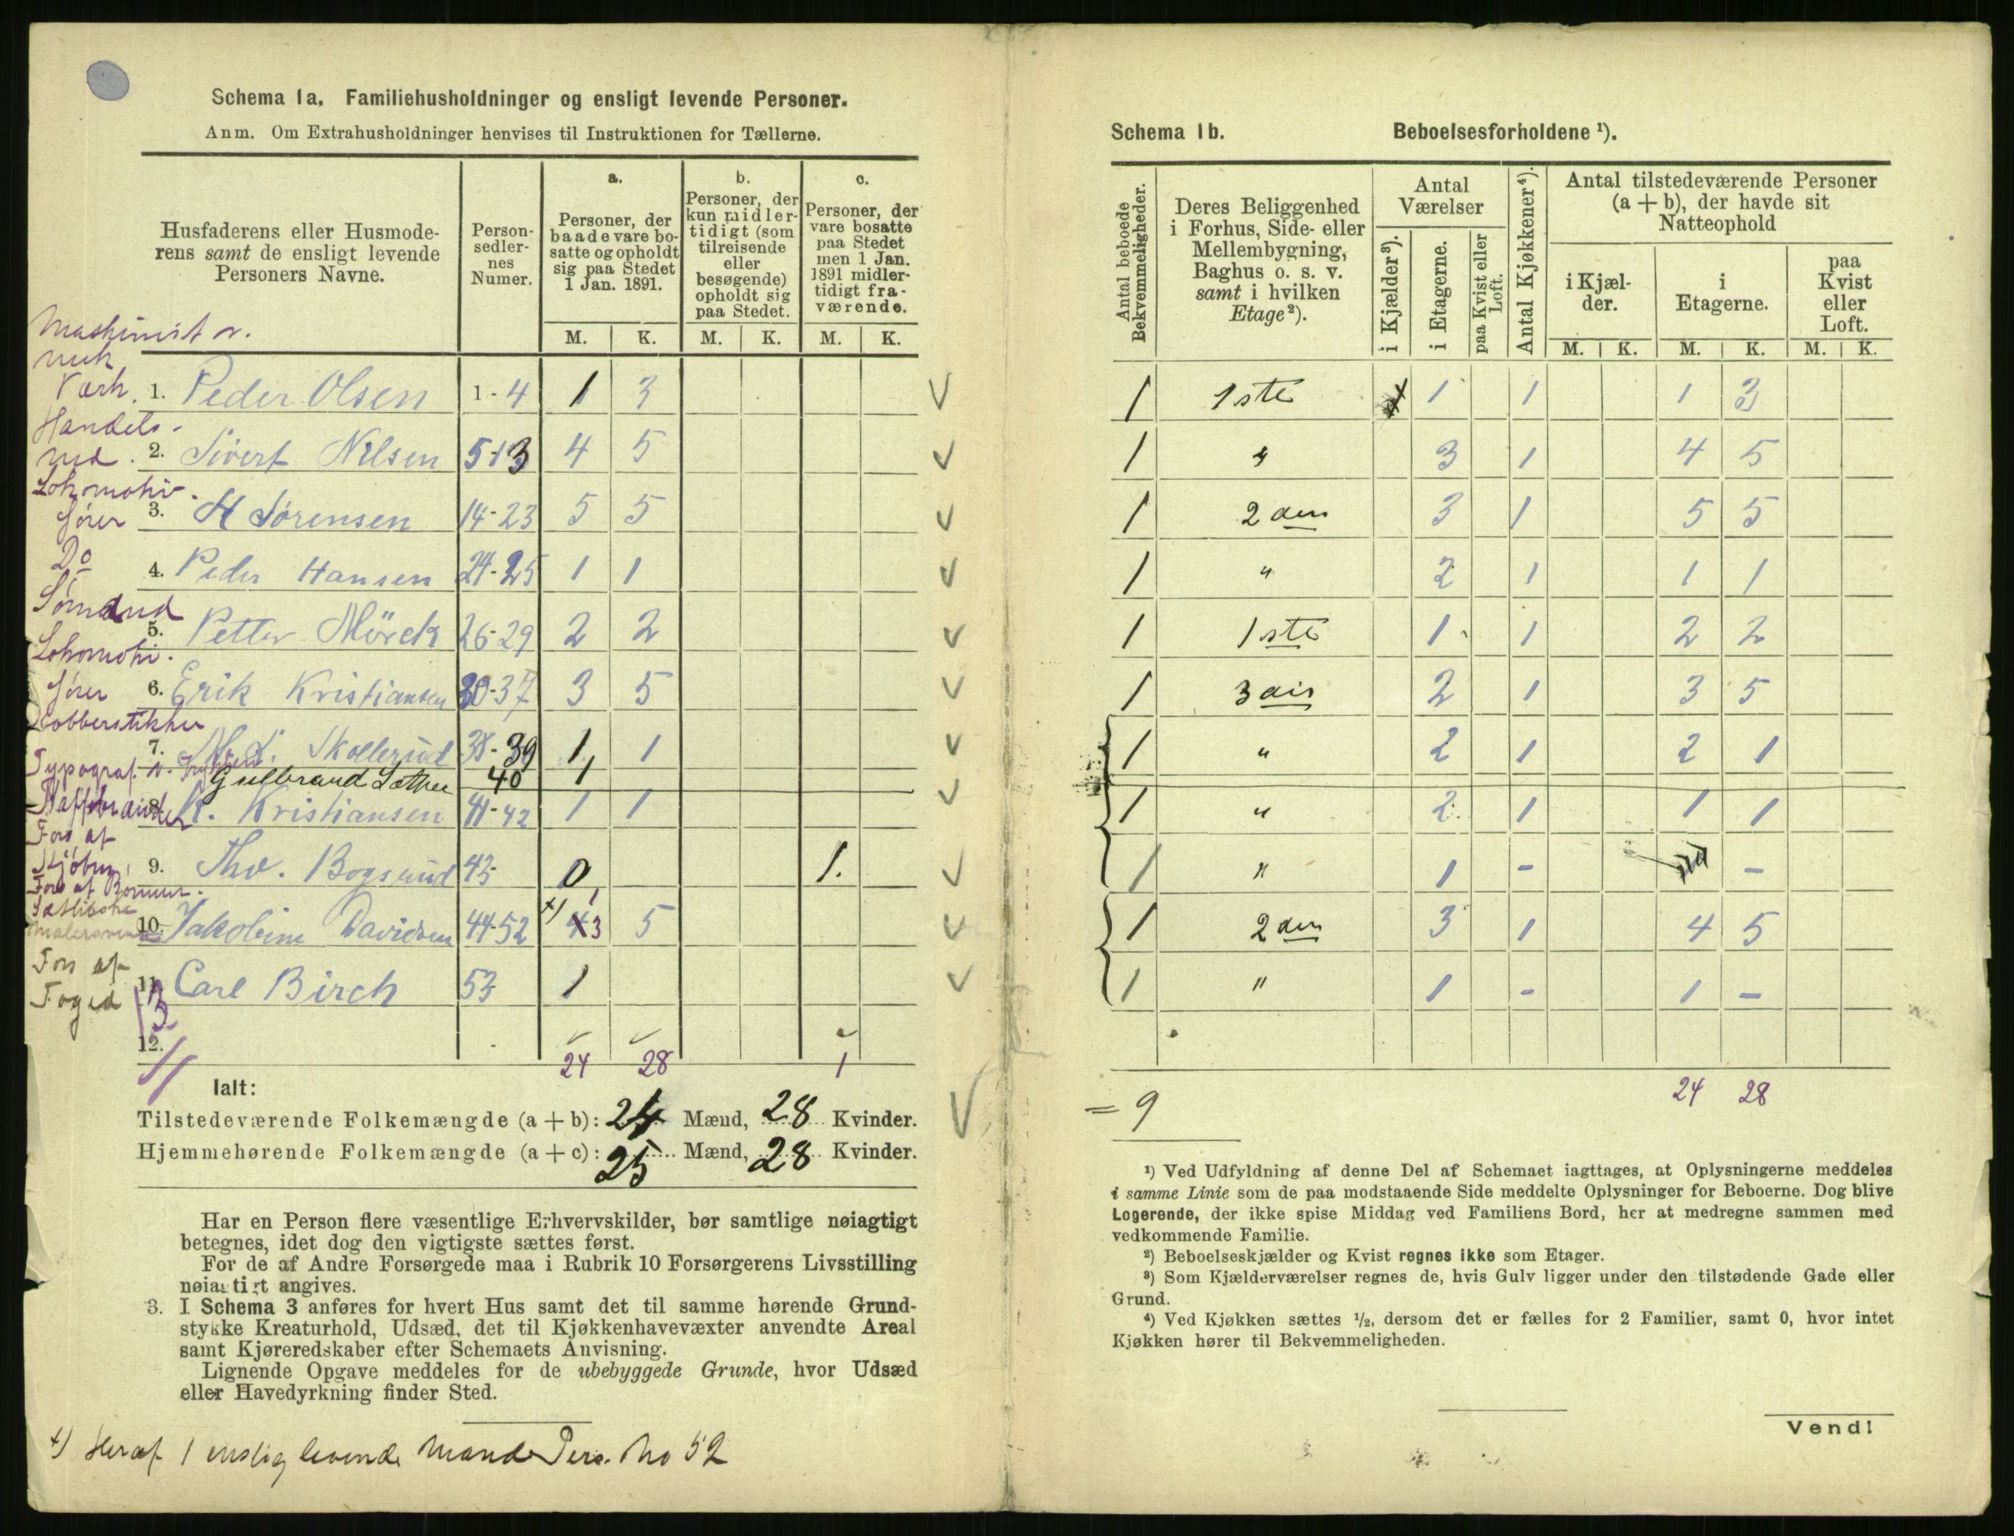 Schema 1a. Familiehusholdninger og ensligt levende Personer.
Anm. Om Extrahusholdninger henvises til Instruktionen for Tællerne.
Husfaderens eller Husmoderens samt de ensligt levende Personers Navne.
Personsedlernes Numer.
a. Personer, der baade vare bosatte og opholdt sig paa Stedet 1 Jan. 1891.
b. Personer, der kun midlertidigt (som tilreisende eller besøgende) opholdt sig paa Stedet.
c. Personer, der vare bosatte paa Stedet men 1 Jan. 1891 midlertidigt fraværende.
M. K. M. K. M. K.
Maskinist v. mek Værk. 1. Peder Olsen 1-4 1 3
Handels- 2. Sivert Nilsen 5-13 4 5
Lokomotivfører 3. H Sørensen 14-23 5 5
Do 4. Peder Hansen 24-25 1 1
Sømand 5. Petter Mörck 26-29 2 2
Lokomotivfører 6. Erik Kristiansen 30-37 3 5
Kobberstikker 7. Skollerud 38-39 1 1
Typograf Gulbrand 40 1
8. Kristiansen 41-42 1 1
9. Tho. Bogsrud 43 0 1.
10. Jakobine Davidsen 44-52 +) 43 5
Fors af Foged 11. Carl Birch 53 1
12.
24 28 1
Ialt:
Tilstedeværende Folkemængde (a + b): 24 Mænd, 28 Kvinder.
Hjemmehørende Folkemængde (a + c): 25 Mænd, 28 Kvinder.
Har en Person flere væsentlige Erhvervskilder, bør samtlige nøiagtigt
betegnes, idet dog den vigtigste sættes først.
For de af Andre Forsørgede maa i Rubrik 10 Forsørgerens Livsstilling
nøiagtigt angives.
3. I Schema 3 anføres for hvert Hus samt det til samme hørende Grund-
stykke Kreaturhold, Udsæd, det til Kjøkkenhavevæxter anvendte Areal
samt Kjøreredskaber efter Schemaets Anvisning.
Lignende Opgave meddeles for de ubebyggede Grunde, hvor Udsæd
eller Havedyrkning finder Sted.
+) Heraf 1 enslig levende Mand Pers. No 52
Schema 1b. Beboelsesforholdene ¹).
Antal beboede Bekvemmeligheder.
Deres Beliggenhed i Forhus, Side- eller Mellembygning, Baghus o. s. v. samt i hvilken Etage²).
Antal Værelser
i Kjælder³).
i Etagerne.
paa Kvist eller Loft.
Antal Kjøkkener⁴).
Antal tilstedeværende Personer (a + b), der havde sit Natteophold
i Kjælder.
i Etagerne.
paa Kvist eller Loft.
M. K. M. K. M. K.
1 1ste 1 1 1 3
1 " 3 1 4 5
1 2den 3 1 5 5
1 " 2 1 1 1
1 1ste 1 1 2 2
1 3die 2 1 3 5
1 " 2 1 2 1
1 " 2 1 1 1
1 " 1 - -
1 2den 3 1 4 5
1 " 1 - 1 -
24 28
= 9
¹) Ved Udfyldning af denne Del af Schemaet iagttages, at Oplysningerne meddeles
i samme Linie som de paa modstaaende Side meddelte Oplysninger for Beboerne. Dog blive
Logerende, der ikke spise Middag ved Familiens Bord, her at medregne sammen med
vedkommende Familie.
²) Beboelseskjælder og Kvist regnes ikke som Etager.
³) Som Kjælderværelser regnes de, hvis Gulv ligger under den tilstødende Gade eller
Grund.
⁴) Ved Kjøkken sættes ½, dersom det er fælles for 2 Familier, samt 0, hvor intet
Kjøkken hører til Bekvemmeligheden.
Vend!